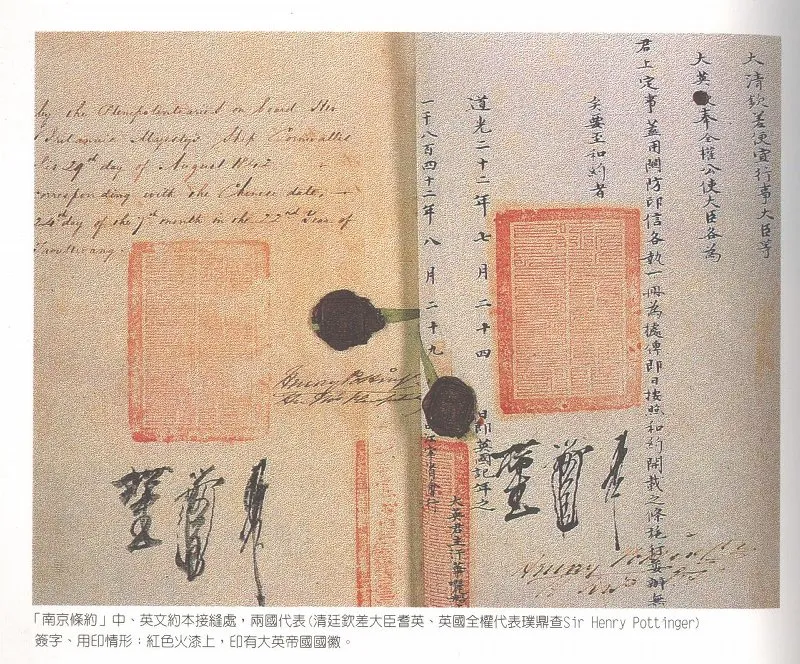 by the Plenipotentiaries on board Her
Britannic Majesty's Ship Cornwallis
this 29th day of August 1842
corresponding with the Chinese date, —
24th day of the 7th month in the 22nd Year of
Taoukwang
大清欽差便宜行事大臣等
大英 奉全權公使大臣各為
君上定事蓋用關防印信各執一冊為據俾即日按照和約開載之條施行妥辦無
矣要至和約者
道光二十二年七月二十四日即英國記年之
一千八百四十二年八月二十九
大英君主
Henry Pottinger
「南京條約」中、英文約本接縫處，兩國代表(清廷欽差大臣耆英、英國全權代表璞鼎查Sir Henry Pottinger)
簽字、用印情形：紅色火漆上，印有大英帝國國徽。